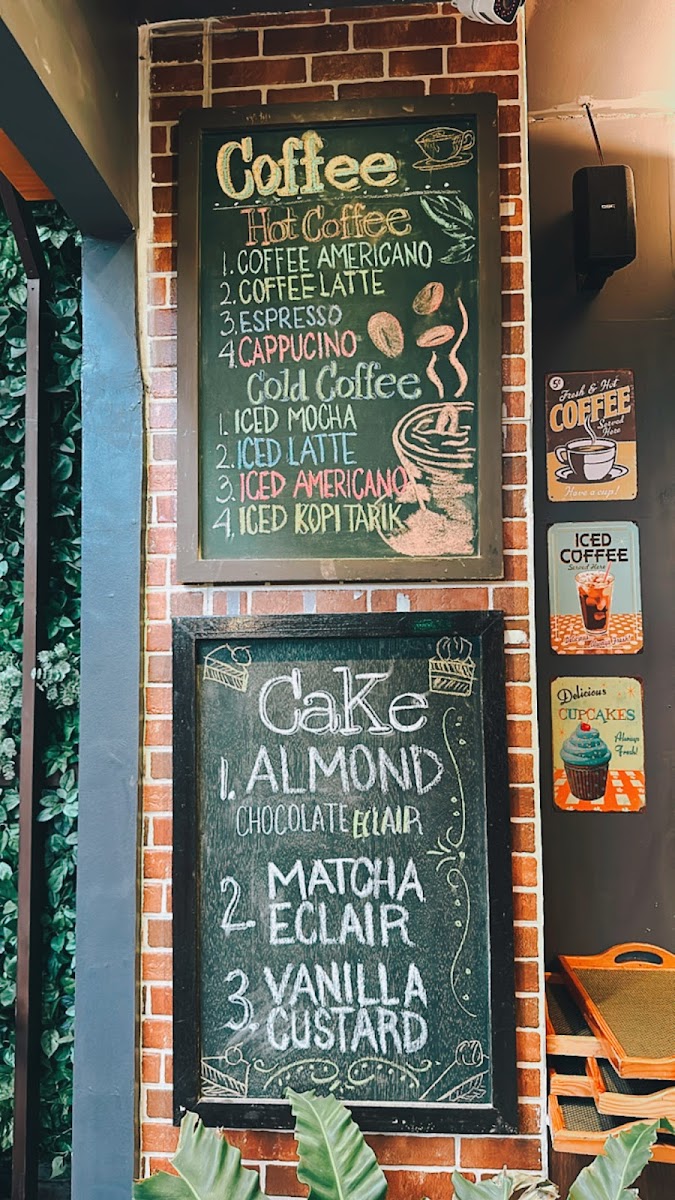 Coffee
Hot Coffee
1. COFFEE AMERICANO
2. COFFEE LATTE
3. ESPRESSO
4. CAPPUCINO
Cold Coffee
1. ICED MOCHA
2. ICED LATTE
3. ICED AMERICANO
4. ICED KOPI TARIK
Cake
1. ALMOND
CHOCOLATE ECLAIR
2 MATCHA
ECLAIR
3. VANILLA
CUSTARD
5¢
Fresh & Hot
COFFEE
Served
Here
Have a cup!
ICED
COFFEE
Served Here
Always Fresh!
Delicious
CUPCAKES
Always
Fresh!